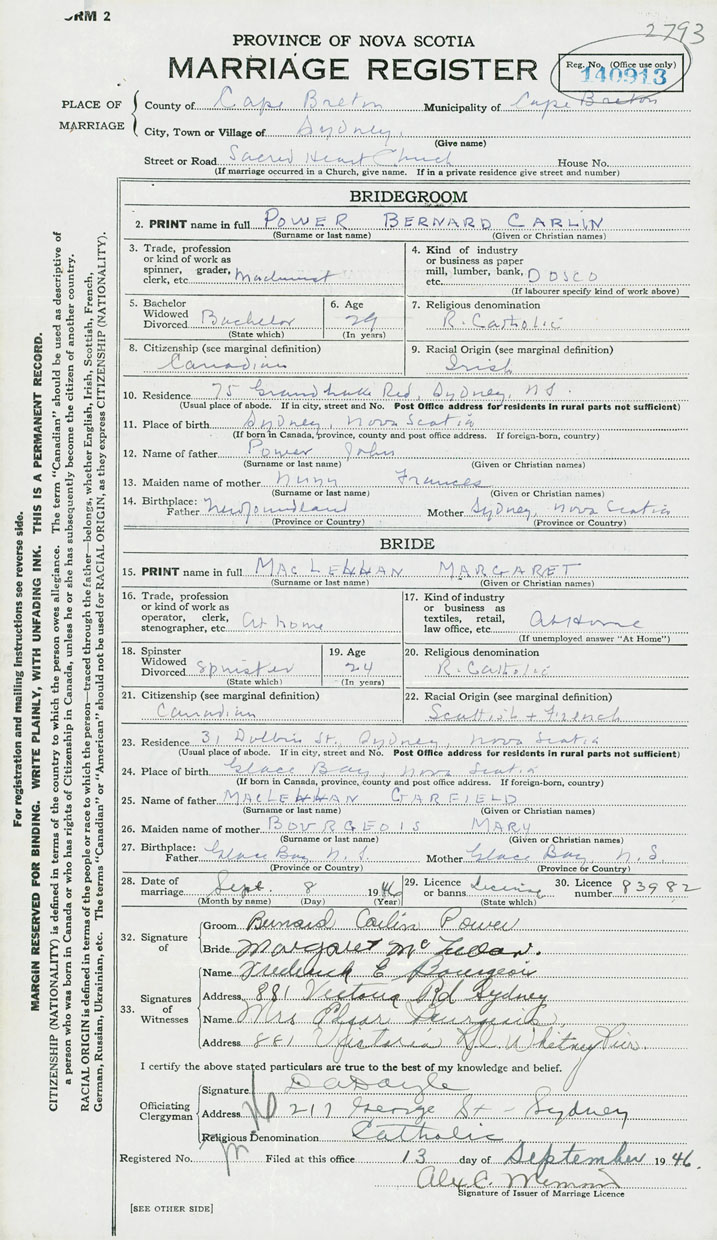 FORM 2
2793
PROVINCE OF NOVA SCOTIA
MARRIAGE REGISTER
Reg. No. (Office use only)
140913
PLACE OF MARRIAGE
County of Cape Breton Municipality of Cape Breton
City, Town or Village of Sydney,
(Give name)
Street or Road Sacred Heart Church House No.
(If marriage occurred in a Church, give name. If in a private residence give street and number)
BRIDEGROOM
2. PRINT name in full POWER BERNARD CARLIN
(Surname or last name) (Given or Christian names)
3. Trade, profession or kind of work as spinner, grader, clerk, etc. Machinist
4. Kind of industry or business as paper mill, lumber, bank, etc. DOSCO
(If labourer specify kind of work above)
5. Bachelor Widowed Divorced Bachelor
(State which)
6. Age 29
(In years)
7. Religious denomination
R. Catholic
8. Citizenship (see marginal definition)
Canadian
9. Racial Origin (see marginal definition)
Irish
10. Residence 75 Grand Lake Rd, Sydney, N.S.
(Usual place of abode. If in city, street and No. Post Office address for residents in rural parts not sufficient)
11. Place of birth Sydney, Nova Scotia
(If born in Canada, province, county and post office address. If foreign-born, country)
12. Name of father Power John
(Surname or last name) (Given or Christian names)
13. Maiden name of mother Nunn Frances
(Surname or last name) (Given or Christian names)
14. Birthplace: Father Newfoundland Mother Sydney, Nova Scotia
(Province or Country) (Province or Country)
BRIDE
15. PRINT name in full MACLENNAN MARGARET
(Surname or last name) (Given or Christian names)
16. Trade, profession or kind of work as operator, clerk, stenographer, etc. At home
17. Kind of industry or business as textiles, retail, law office, etc. At Home
(If unemployed answer "At Home")
18. Spinster Widowed Divorced Spinster
(State which)
19. Age 24
(In years)
20. Religious denomination
R. Catholic
21. Citizenship (see marginal definition)
Canadian
22. Racial Origin (see marginal definition)
Scottish + French
23. Residence 31 St, Sydney, Nova Scotia
(Usual place of abode. If in city, street and No. Post Office address for residents in rural parts not sufficient)
24. Place of birth Glace Bay, Nova Scotia
(If born in Canada, province, county and post office address. If foreign-born, country)
25. Name of father MACLENNAN GARFIELD
(Surname or last name) (Given or Christian names)
26. Maiden name of mother BOURGEOIS MARY
(Surname or last name) (Given or Christian names)
27. Birthplace: Father Glace Bay, N.S. Mother Glace Bay, N.S.
(Province or Country) (Province or Country)
28. Date of marriage Sept. 8 1946
(Month by name) (Day) (Year)
29. Licence or banns
(State which)
30. Licence number 83982
32. Signature of
Groom Bernard Carlin Power
Bride Margaret
33. Signatures of Witnesses
Name Frederick E Bourgeois
Address 881 Victoria Rd Sydney
Name Mrs Edgar Bourgeois
Address 881 Victoria Rd. Whitney Pier.
I certify the above stated particulars are true to the best of my knowledge and belief.
Officiating Clergyman
Signature Doyle
Address 217 George St - Sydney
Religious Denomination Catholic
Registered No. Filed at this office 13 day of September 1946.
Alex C.
Signature of Issuer of Marriage Licence
[SEE OTHER SIDE]
For registration and mailing instructions see reverse side.
MARGIN RESERVED FOR BINDING. WRITE PLAINLY, WITH UNFADING INK. THIS IS A PERMANENT RECORD.
CITIZENSHIP (NATIONALITY) is defined in terms of the country to which the person owes allegiance. The term "Canadian" should be used as descriptive of
a person who was born in Canada or who has rights of Citizenship in Canada, unless he or she has subsequently become the citizen of another country.
RACIAL ORIGIN is defined in terms of the people or race to which the person—traced through the father—belongs, whether English, Irish, Scottish, French,
German, Russian, Ukrainian, etc. The terms "Canadian" or "American" should not be used for RACIAL ORIGIN, as they express CITIZENSHIP (NATIONALITY).